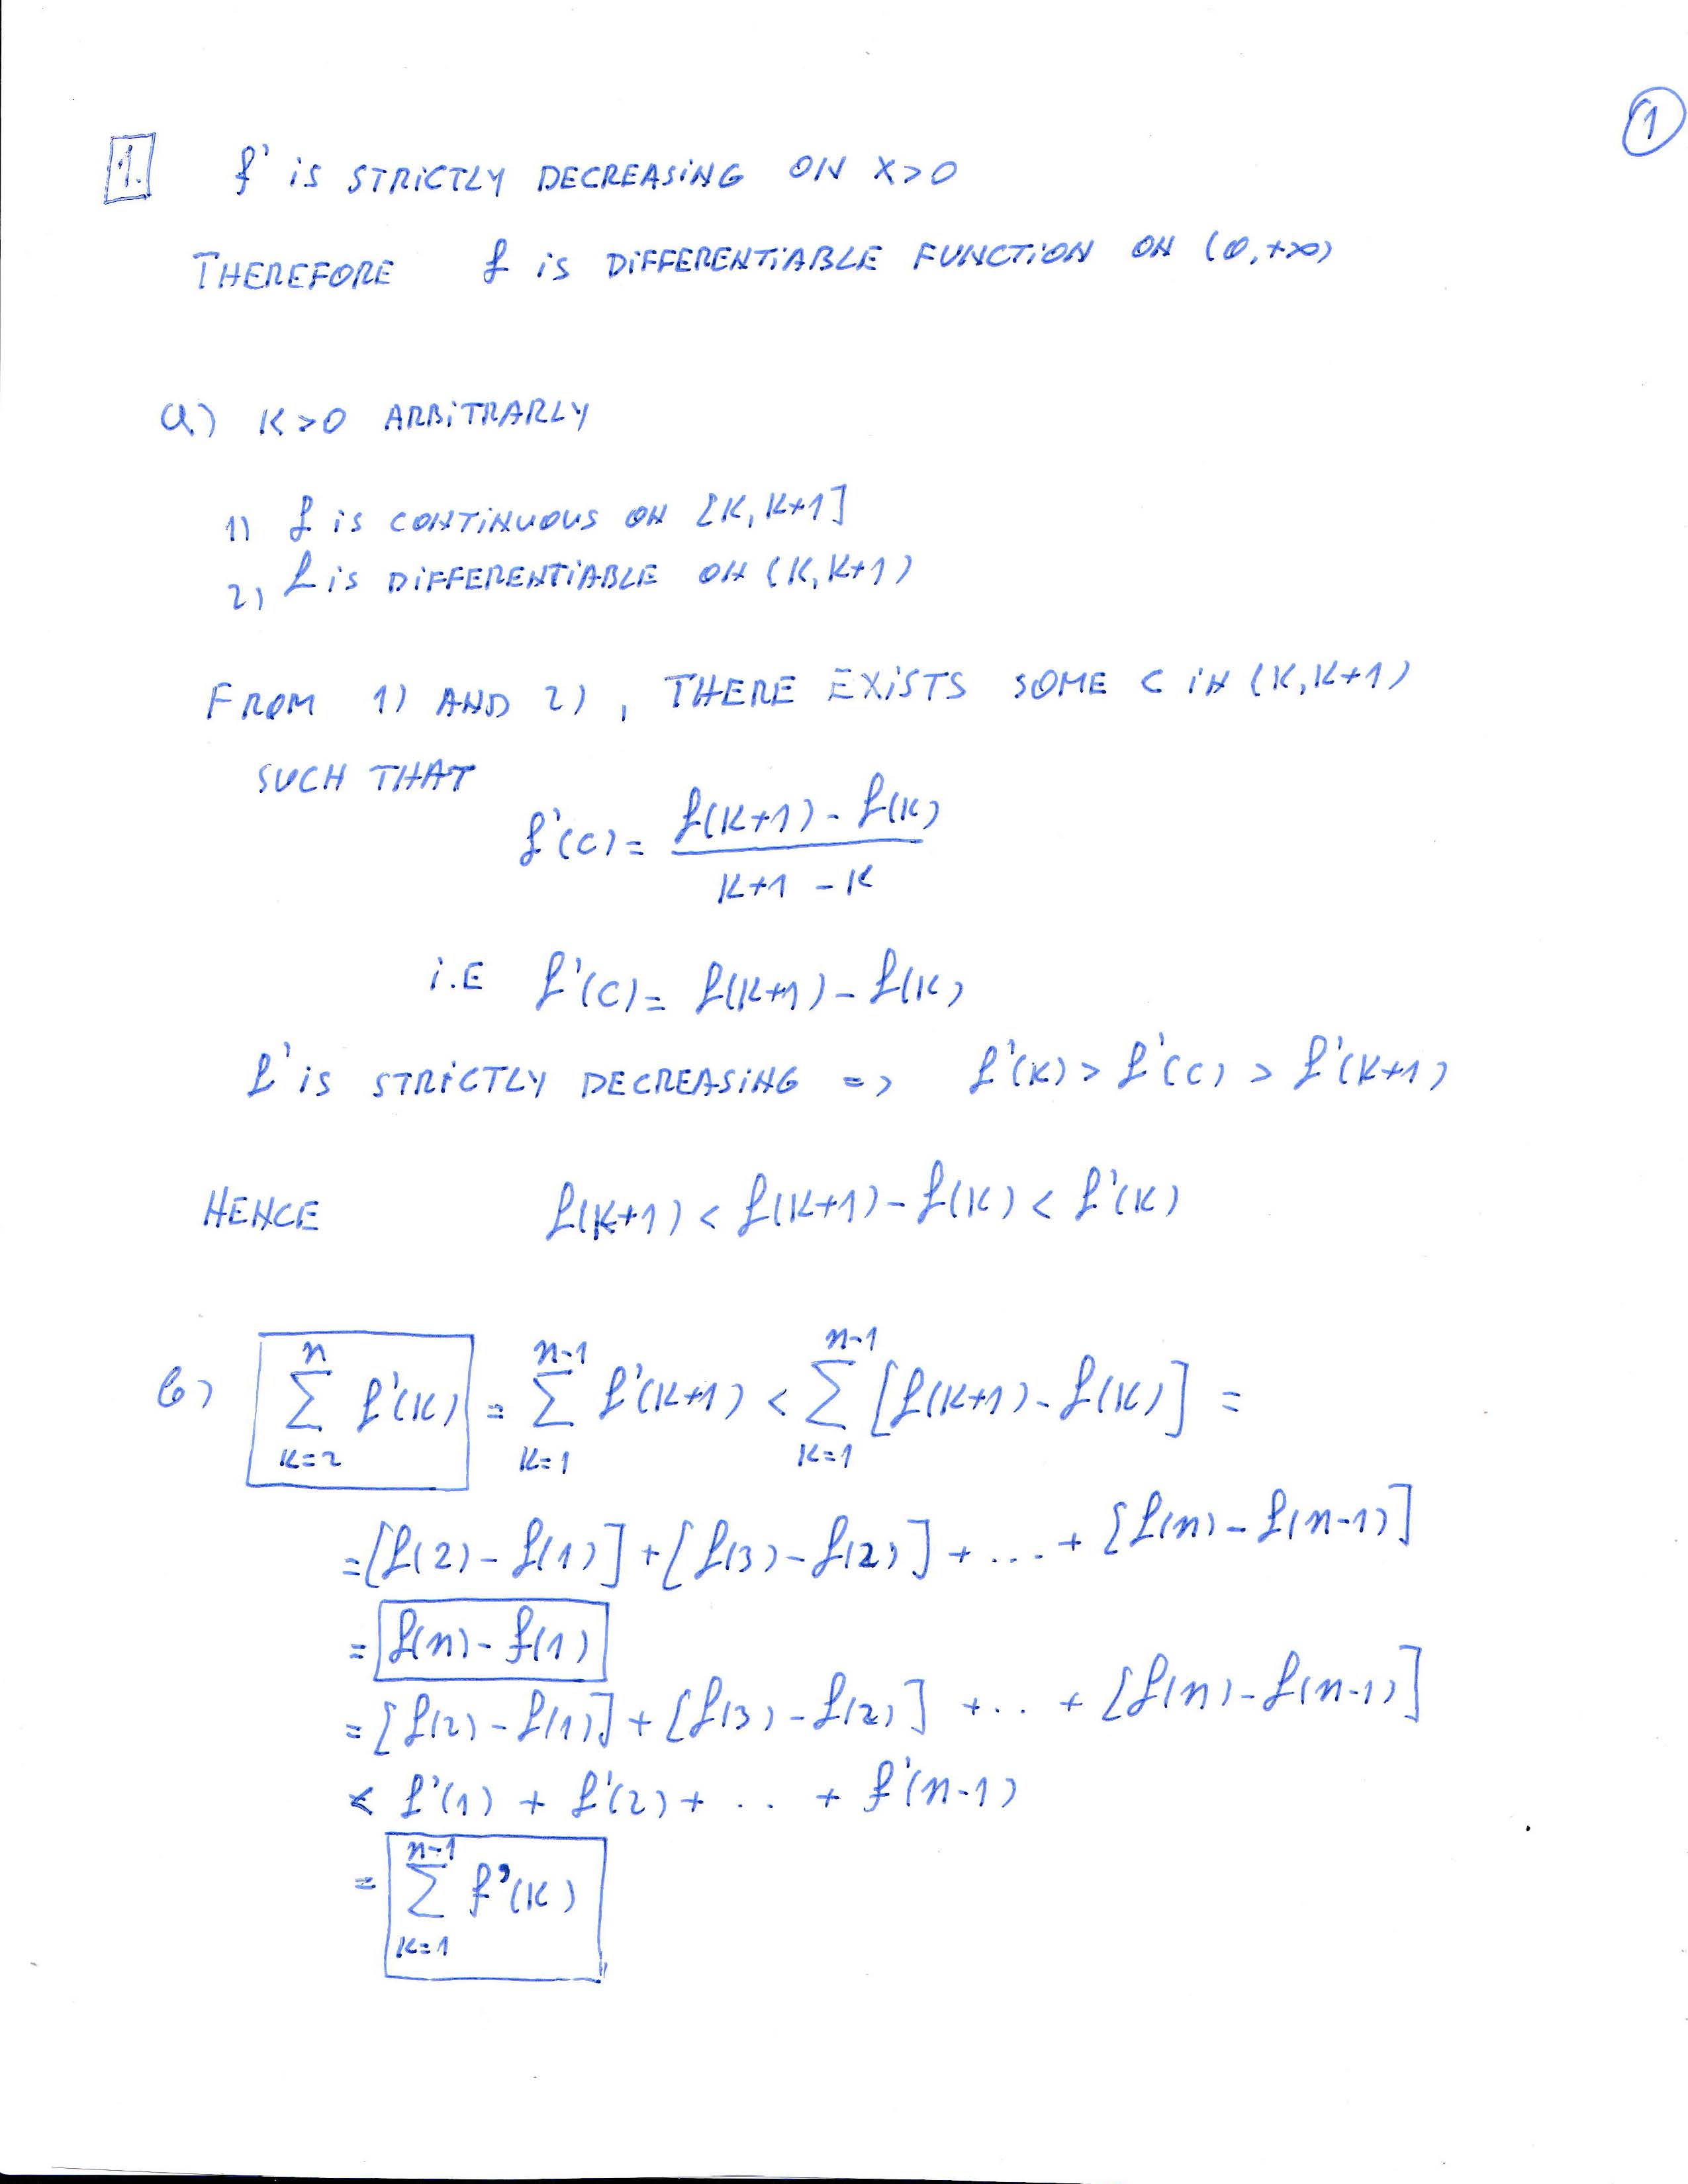 ①
1. f' iS STRiCTLY DECREASiNG ON X>0
THEREFORE f iS DiFFERENTiABLE FUNCTiON ON (0,+∞)
a) K>0 ARBiTRARLY
1) f iS CONTiNUOUS ON [K,K+1]
2) f iS DiFFERENTiABLE ON (K,K+1)
FROM 1) AND 2), THERE EXiSTS SOME C iN (K,K+1)
SUCH THAT
f'(C) = (f(K+1) - f(K)) / (K+1 - K)
i.E f'(C) = f(K+1) - f(K)
f' iS STRiCTLY DECREASiNG => f'(K) > f'(C) > f'(K+1)
HENCE f(K+1) < f(K+1) - f(K) < f'(K)
b) ∑_{K=2}^{n} f'(K) = ∑_{K=1}^{n-1} f'(K+1) < ∑_{K=1}^{n-1} [f(K+1) - f(K)] =
= [f(2) - f(1)] + [f(3) - f(2)] + ... + [f(n) - f(n-1)]
= f(n) - f(1)
= [f(2) - f(1)] + [f(3) - f(2)] + .. + [f(n) - f(n-1)]
< f'(1) + f'(2) + .. + f'(n-1)
= ∑_{K=1}^{n-1} f'(K)